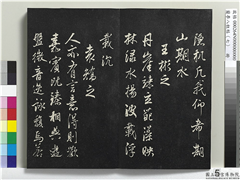 隱几凡我仰希期
山期水
王彬之
丹崖竦立葩藻映
林淥水揚波載浮
載沉
袁嶠之
人亦有言意得則歡
嘉賓既臻相與遊
盤微音迭詠馥焉若